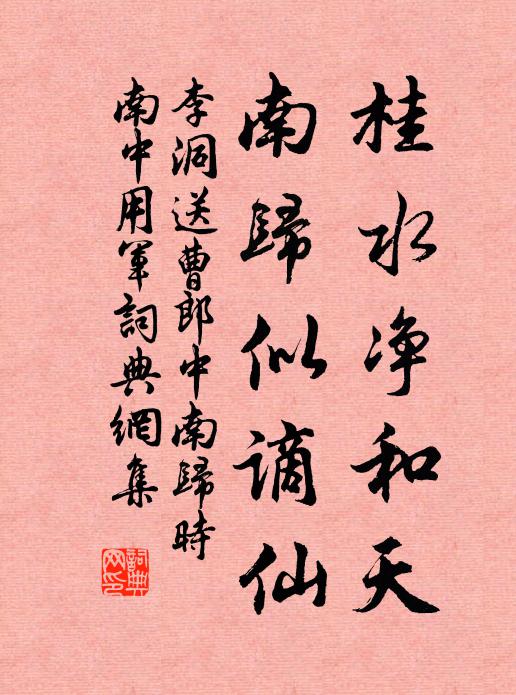 桂水净和天
南歸似謫仙
李洞送曹郎中南歸時
南中用軍詞典網集
詞典網印